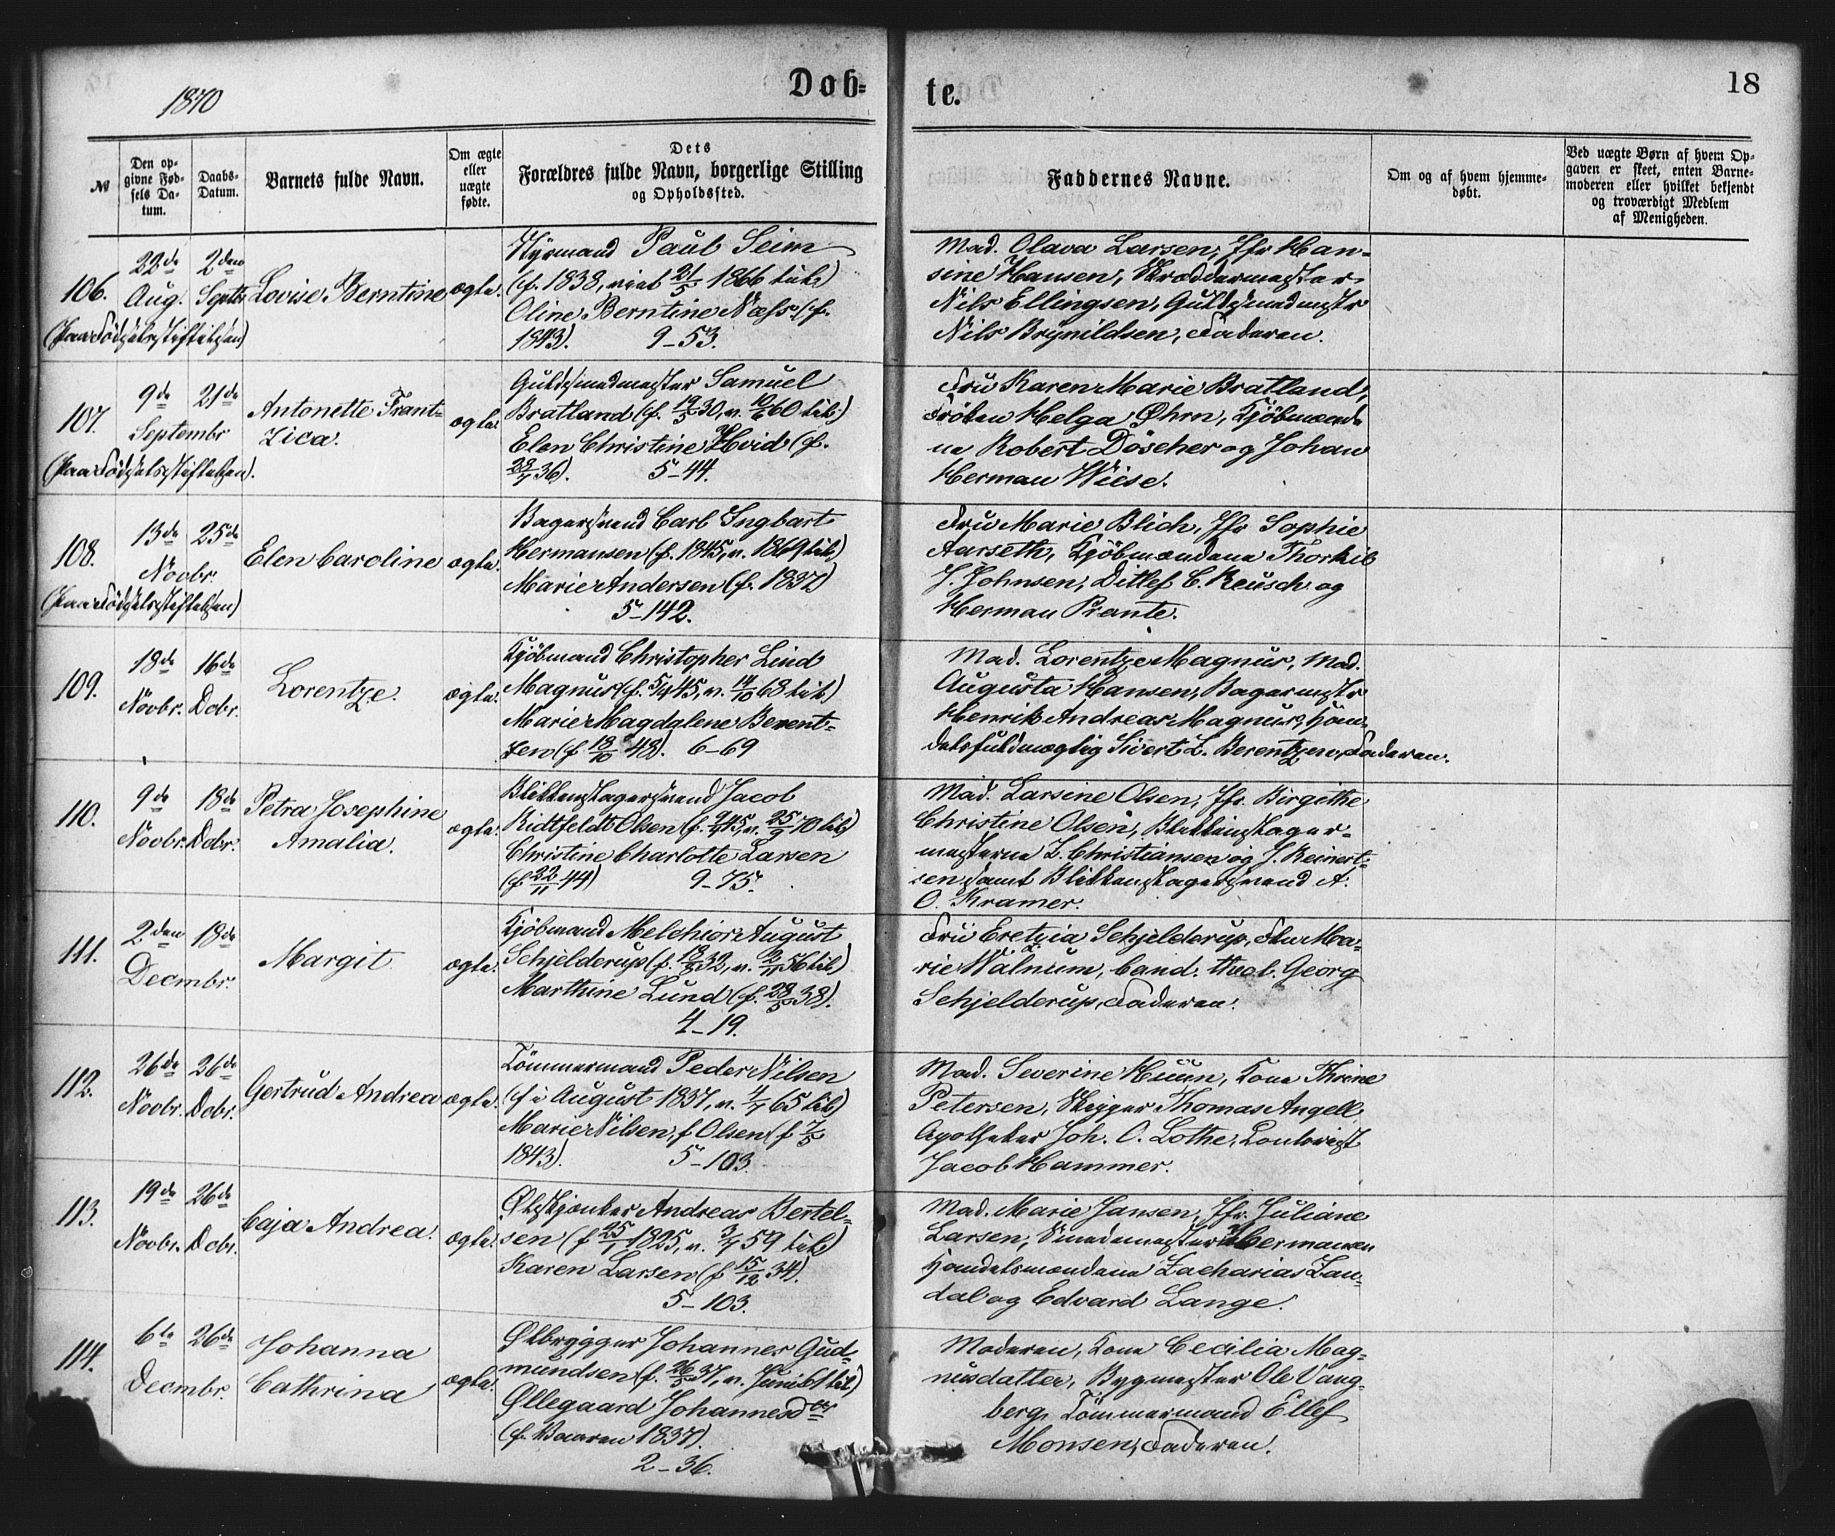 1870
Døb-
te.
18
№
Den op-
givne Fød-
sels Da-
tum.
Daabs-
Datum.
Barnets fulde Navn.
Om ægte
eller
uægte
fødte.
Dets
Forældres fulde Navn, borgerlige Stilling
og Opholdssted.
Faddernes Navne.
Om og af hvem hjemme-
døbt.
Ved uægte Børn af hvem Op-
gaven er skeet, enten Barne-
moderen eller hvilket bekjendt
og troværdigt Medlem
af Menigheden.
106.
22de
Aug.
2den
Septbr
Lovise Berntine
ægte.
(Paa Födselsstiftelsen)
Paul Seim
(f. 1838, viet 21/5 1866 til)
Oline Berntine Næss (f.
1843). 9-53.
Mad. Olava Larsen, Jfr Han-
sine Hansen, Skræddermester
Nils Ellingsen, Guldsmedmestr
Nils Brynildsen, Faderen.
107.
9de
21de
Septembr
Antonette Frant-
zica.
ægte.
(Paa Födselsstiftelsen).
Guldsmedmester Samuel
Bratland (f. 19/3 30, v. 10/6 60 til)
Elen Christine Hvid (f.
36). 5-44.
Fru Karen Marie Bratland,
Fröken Helga Öhrn, Kjöbmænde
ne Robert Döscher og Johan
Herman Wiese.
108.
13de
25de
Novbr.
Elen Caroline
ægte.
(Paa Födselsstiftelsen)
Bagersvend Carl Ingbart
Hermansen (f. 1845, v. 1869 til)
Marie Andersen (f. 1837)
5-142.
Fru Marie Blich, Jfr Sophie
Aarseth, Kjöbmændene Thorkil
J. Johnsen, Ditlef C. Reusch og
Herman Prante.
109.
18de
Novbr.
16de
Dcbr.
Lorentze.
ægte.
Kjöbmand Christopher Lind
Magnus (f. 5/4 45, v. 14/10 68 til)
Marie Magdalene Berent-
zen (f 18/10 48). 6-69
Mad. Lorentze Magnus, Mad.
Augusta Hansen, Bagermestr
Henrik Andreas Magnus, Han-
delsfuldmægtig Sivert L. Berentzen, Faderen.
110.
9de
Novbr.
18de
Dcbr.
Petra Josephine
Amalia.
ægte.
Blikkenslagersvend Jacob
Ridtfeldt Olsen (f. 45, v. 70 til)
Christine Charlotte Larsen
(f. 22/11 44) 9-75.
Mad. Larsine Olsen, Jfr. Birgithe
Christine Olsen, Blikkenslager-
mesterne L. Christiansen og J. Reinert-
sen samt Blikkenslagersvend A.
O. Kramer.
111.
2den
18de
Decmbr.
Margit
ægte.
Kjöbmand Melchior August
Schjelderup (f. 32, v. 56 til)
Marthine Lund (f. 38).
4-19.
Fru Eretzia Schjelderup, Fru Ma-
rie Walnum, Cand. theol. Georg
Schjelderup, Faderen.
112.
26de
Novbr.
26de
Dcbr.
Gertrud Andrea
ægte.
Tömmermand Peder Nilsen
(f i August 1837, v. 65 til)
Marie Nilsen, f Olsen (f 7/5
1843). 5-103.
Mad. Severine Huun, Kone Thrine
Petersen, Skipper Thomas Angell,
Apotheker Joh. C. Lothe, Kontorist
Jacob Hammer.
113.
19de
Novbr.
26de
Dcbr.
Caja Andrea.
ægte.
Ølskjenker Andreas Bertel-
sen (f 25/1 1825, v. 59 til)
Karen Larsen (f 15/12 34).
5-103.
Mad. Marie Jansen, Jfr. Juliane
Larsen, Smedemester Hermansen
Handelsmændene Zacharias Lan-
dal og Edvard Lange.
114.
6te
26de
Decmbr.
Johanna
Cathrina
ægte.
Ølbrygger Johannes Gud-
mundsen (f. 26/5 37, v. Juni 61 til)
Øllegaard Johannesdtr
(f. Baaren 1837).
2-36.
Moderen, Kone Cecilia Mag-
nusdatter, Bygmester Ole Vang-
berg, Tömmermand Ellef
Monsen, Faderen.